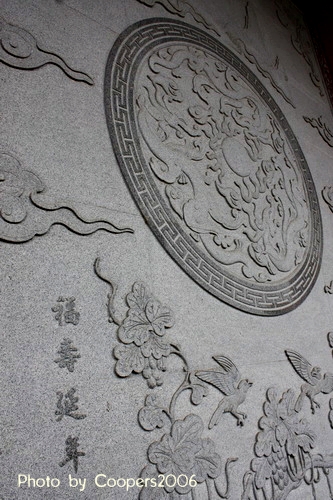 福壽延年
Photo by Coopers2006